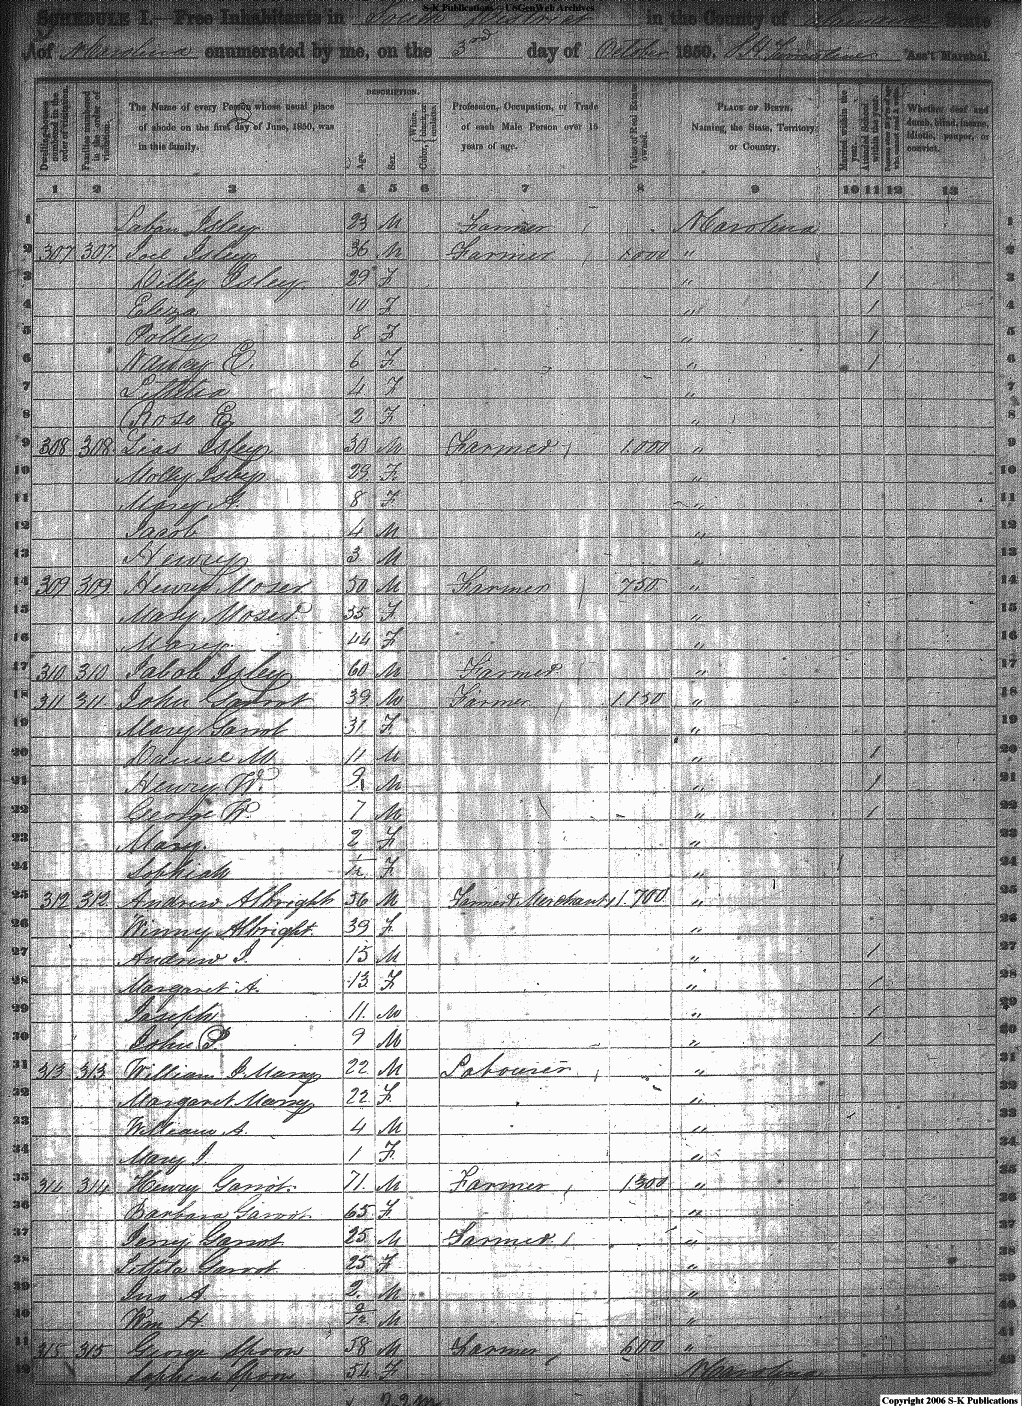 S-K Publications - USGenWeb Archives
SCHEDULE I.—Free Inhabitants in South District in the County of Alamance State
of N Carolina enumerated by me, on the 3rd day of October 1850. Ass't Marshal.
Dwelling-houses numbered in the order of visitation. Families numbered in the order of visitation. The Name of every Person whose usual place of abode on the first day of June, 1850, was in this family. DESCRIPTION. Age. Sex. White, black, or mulatto. Color, Profession, Occupation, or Trade of each Male Person over 15 years of age. Value of Real Estate owned. PLACE OF BIRTH. Naming the State, Territory, or Country. Married within the year. Attended School within the year. Whether deaf and dumb, blind, insane, idiotic, pauper, or convict.
1 2 3 4 5 6 7 8 9 10 11 12 13
1 Laban Isley 23 M Farmer N Carolina 1
2 307 307 Joel Isley 36 M Farmer 1000 " 2
3 Dilley Isley 29 F " 1 3
4 Eliza 10 F " 1 4
5 Polley 8 F " 1 5
6 Nancy E. 6 F " 1 6
7 Lettitia 4 F " 7
8 Rose E 2 F " 8
9 308 308 Isley 30 M Farmer 1.000 " 9
10 Molley Isley 29 F " 10
11 Mary A. 8 F " 11
12 Jacob 4 M " 12
13 Henry 3 M " 13
14 309 309 Henry Moser 50 M Farmer 750 " 14
15 Mary Moser 35 F " 15
16 Mary 44 F " 16
17 310 310 Isley 60 M Farmer " 17
18 311 311 John Garrot 39 M Farmer 1.150 " 18
19 Mary Garrot 31 F " 19
20 Daniel M 11 M " 1 20
21 Henry W. 9 M " 1 21
22 George W. 7 M " 1 22
23 Mary 2 F " 23
24 Sophiah F " 24
25 312 312 Andrew Albright 56 M Farmer & Merchant 1.700 " 25
26 Winny Albright 39 F " 26
27 Andrew J. 15 M " 1 27
28 Margaret A. 13 F " 1 28
29 Joseph 11 M " 1 29
30 John P. 9 M " 1 30
31 313 313 William J Marry 22 M Labourer " 31
32 Margaret Marry 22 F " 32
33 William A. 4 M " 33
34 Mary J. 1 F " 34
35 314 314 Henry Garrot 71 M Farmer 1300 " 35
36 Barbara Garrot 65 F " 36
37 Jerry Garrot 25 M Farmer " 37
38 Lettita Garrot 25 F " 38
39 Jno A 2 M " 39
40 Wm H. 9/12 M " 40
41 315 315 George Spoon 58 M Farmer 600 " 41
42 Sophiah Spoon 54 F N Carolina 42
22 m
Copyright 2006 S-K Publications